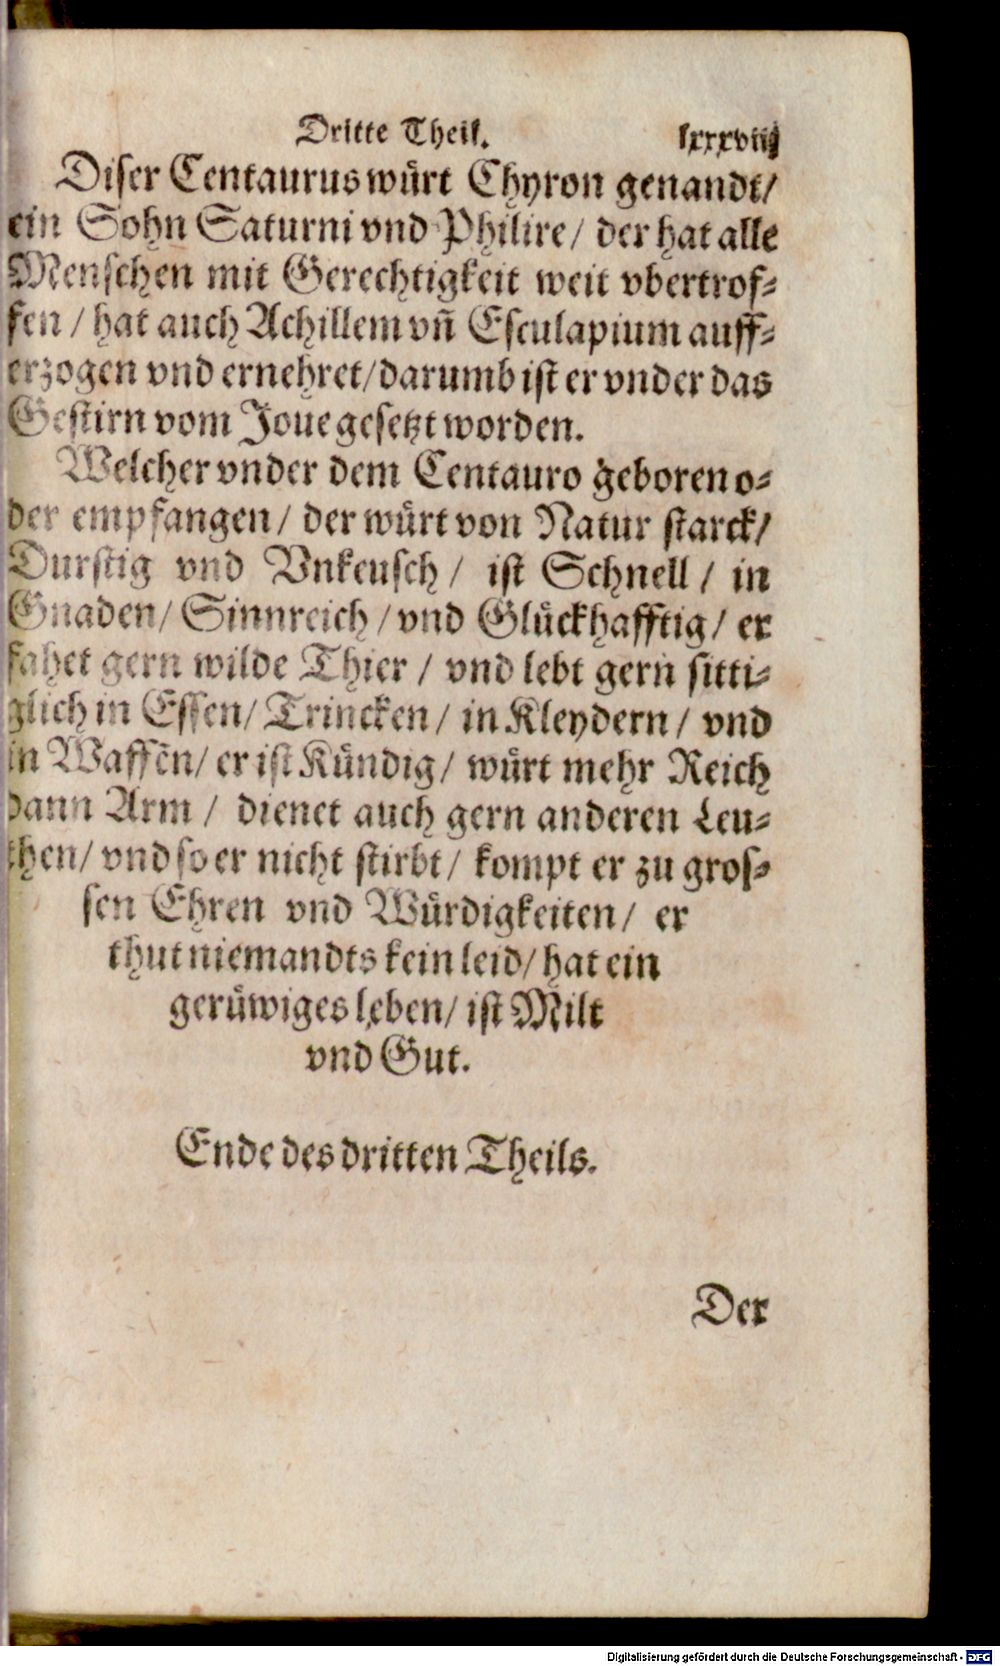 Dritte Theil. lxxxviij
Diser Centaurus wuͤrt Chyron genandt/
ein Sohn Saturni vnd Philire/ der hat alle
Menschen mit Gerechtigkeit weit vbertrof-
fen / hat auch Achillem vñ Esculapium auff-
erzogen vnd ernehret/darumb ist er vnder das
Gestirn vom Joue gesetzt worden.
Welcher vnder dem Centauro geboren o-
der empfangen/ der wuͤrt von Natur starck/
Durstig vnd Vnkeusch / ist Schnell / in
Gnaden/ Sinnreich / vnd Gluͤckhafftig / er
fahet gern wilde Thier / vnd lebt gern sitti-
glich in Essen/ Trincken / in Kleydern / vnd
in Waffẽn/ er ist Kuͤndig/ wuͤrt mehr Reich
dann Arm / dienet auch gern anderen Leu-
then/ vnd so er nicht stirbt/ kompt er zu gros-
sen Ehren vnd Wuͤrdigkeiten/ er
thut niemandts kein leid/ hat ein
geruͤwiges leben/ ist Milt
vnd Gut.
Ende des dritten Theils.
Der
Digitalisierung gefördert durch die Deutsche Forschungsgemeinschaft - DFG